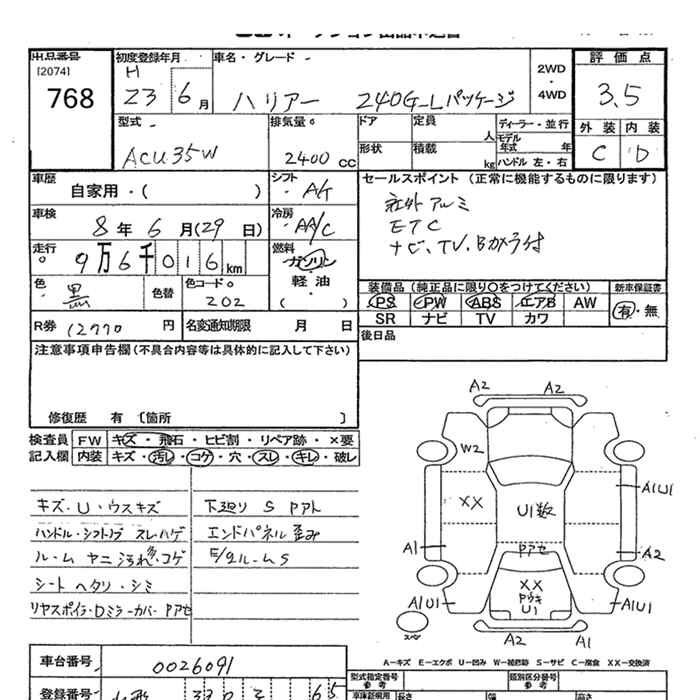 出品番号
[2074]
768
初度登録年月
H
23 6月
車名・グレード
ハリアー 240G-Lパッケージ
2WD
・
4WD
評価点
3.5
外装 内装
C D
型式
ACU35W
排気量
2400 cc
ドア
定員
人
形状
積載
kg
ディーラー・並行
モデル年式 年
ハンドル 左・右
車歴
自家用・( )
シフト
A/T
車検
8年6月(29日)
冷房
AA/C
走行
9万6千016km
燃料
ガソリン
軽油
( )
色
黒
色替
色コード
202
R券 12770円
名変通知期限 月 日
セールスポイント (正常に機能するものに限ります)
社外アルミ
ETC
ナビ、TV、Bカメラ付
装備品 (純正品に限り○をつけてください)
新車保証書
PS PW ABS エアB AW
SR ナビ TV カワ
有・無
後日品
注意事項申告欄(不具合内容等は具体的に記入して下さい)
修復歴 有 〔箇所 〕
検査員記入欄
FW キズ・飛石・ヒビ割・リペア跡・×要
内装 キズ・汚レ・コゲ・穴・スレ・キレ・破レ
キズ・U・ウスキズ
ハンドル・シフトノブ スレ・ハゲ
ルーム ヤニ 汚れ多・コゲ
シート ヘタリ・シミ
リヤスポイラ・Dミラーカバー Pアセ
下廻り S Pアト
エンドパネル歪み
E/gルームS
A2 A2
W2
XX
U1数
A1U1
A1
Pアセ
A2
XX
Pウキ
U1
A1U1
A1U1
スペア
A2 A1
A-キズ E-エクボ U-凹み W-補修跡 S-サビ C-腐食 XX-交換済
車台番号
0026091
型式指定番号
参考
類別区分番号
参考
登録番号
車庫証明用
長さ
幅
高さ